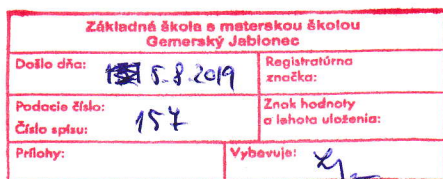 Základná škola s materskou školou
Gemerský Jablonec
Došlo dňa: 5.8.2019
Registratúrna
značka:
Podacie číslo:
Číslo spisu: 157
Znak hodnoty
a lehota uloženia:
Prílohy:
Vybavuje: